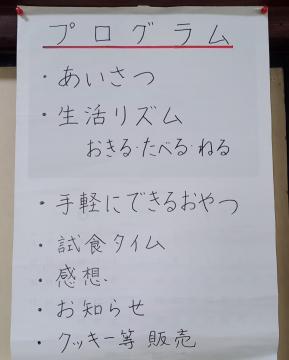 プログラム
・あいさつ
・生活リズム
おきる・たべる・ねる
・手軽にできるおやつ
・試食タイム
・感想
・お知らせ
・クッキー等販売